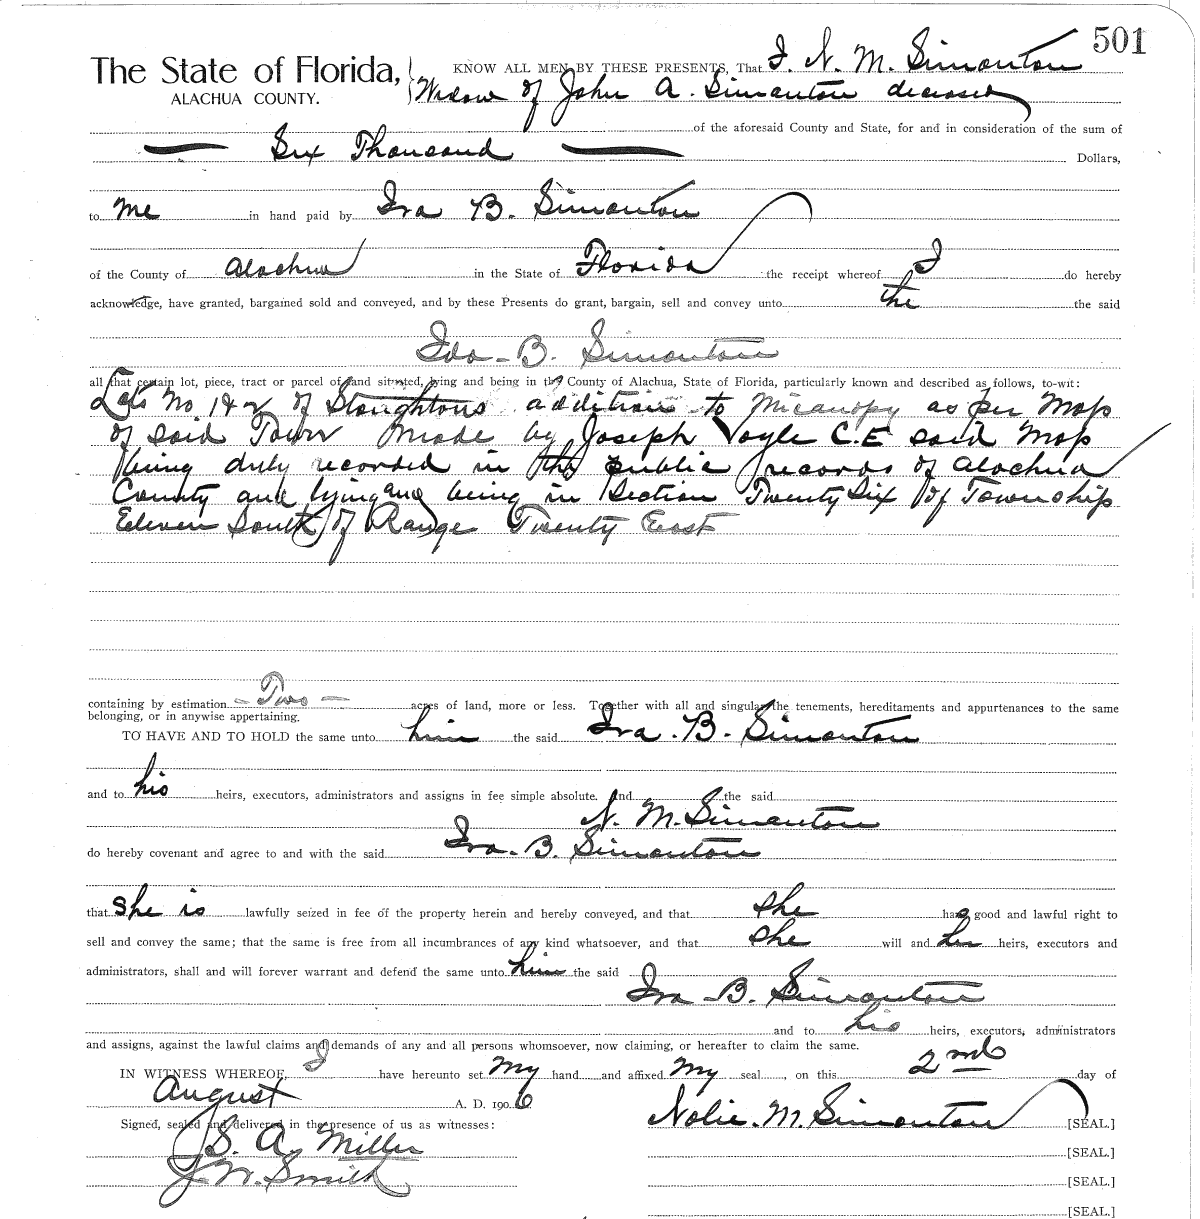 501
The State of Florida, KNOW ALL MEN BY THESE PRESENTS, That I. N. M. Simonton
ALACHUA COUNTY. Widow of John A. Simonton deceased
of the aforesaid County and State, for and in consideration of the sum of
Six Thousand Dollars,
to me in hand paid by Ira B. Simonton
of the County of Alachua in the State of Florida the receipt whereof I do hereby
acknowledge, have granted, bargained sold and conveyed, and by these Presents do grant, bargain, sell and convey unto the the said
Ira B. Simonton
all that certain lot, piece, tract or parcel of land situated, lying and being in the County of Alachua, State of Florida, particularly known and described as follows, to-wit:
Lots No 1 & 2 of Stoughtons addition to Micanopy as per Map
of said Town made by Joseph Voyle C.E said Map
being duly recorded in the public records of Alachua
County and lying and being in Section Twenty Six of Township
Eleven South of Range Twenty East
containing by estimation - Two - acres of land, more or less. Together with all and singular the tenements, hereditaments and appurtenances to the same
belonging, or in anywise appertaining.
TO HAVE AND TO HOLD the same unto him the said Ira. B. Simonton
and to his heirs, executors, administrators and assigns in fee simple absolute. And the said
N. M. Simonton
do hereby covenant and agree to and with the said Ira. B. Simonton
that she is lawfully seized in fee of the property herein and hereby conveyed, and that she has good and lawful right to
sell and convey the same; that the same is free from all incumbrances of any kind whatsoever, and that she will and her heirs, executors and
administrators, shall and will forever warrant and defend the same unto him the said
Ira B. Simonton
and to his heirs, executors, administrators
and assigns, against the lawful claims and demands of any and all persons whomsoever, now claiming, or hereafter to claim the same.
IN WITNESS WHEREOF, I have hereunto set My hand and affixed My seal, on this 2nd day of
August A. D. 1906.
Signed, sealed and delivered in the presence of us as witnesses: Nolie. M. Simonton [SEAL.]
S. A. Miller [SEAL.]
J W. Smith [SEAL.]
[SEAL.]